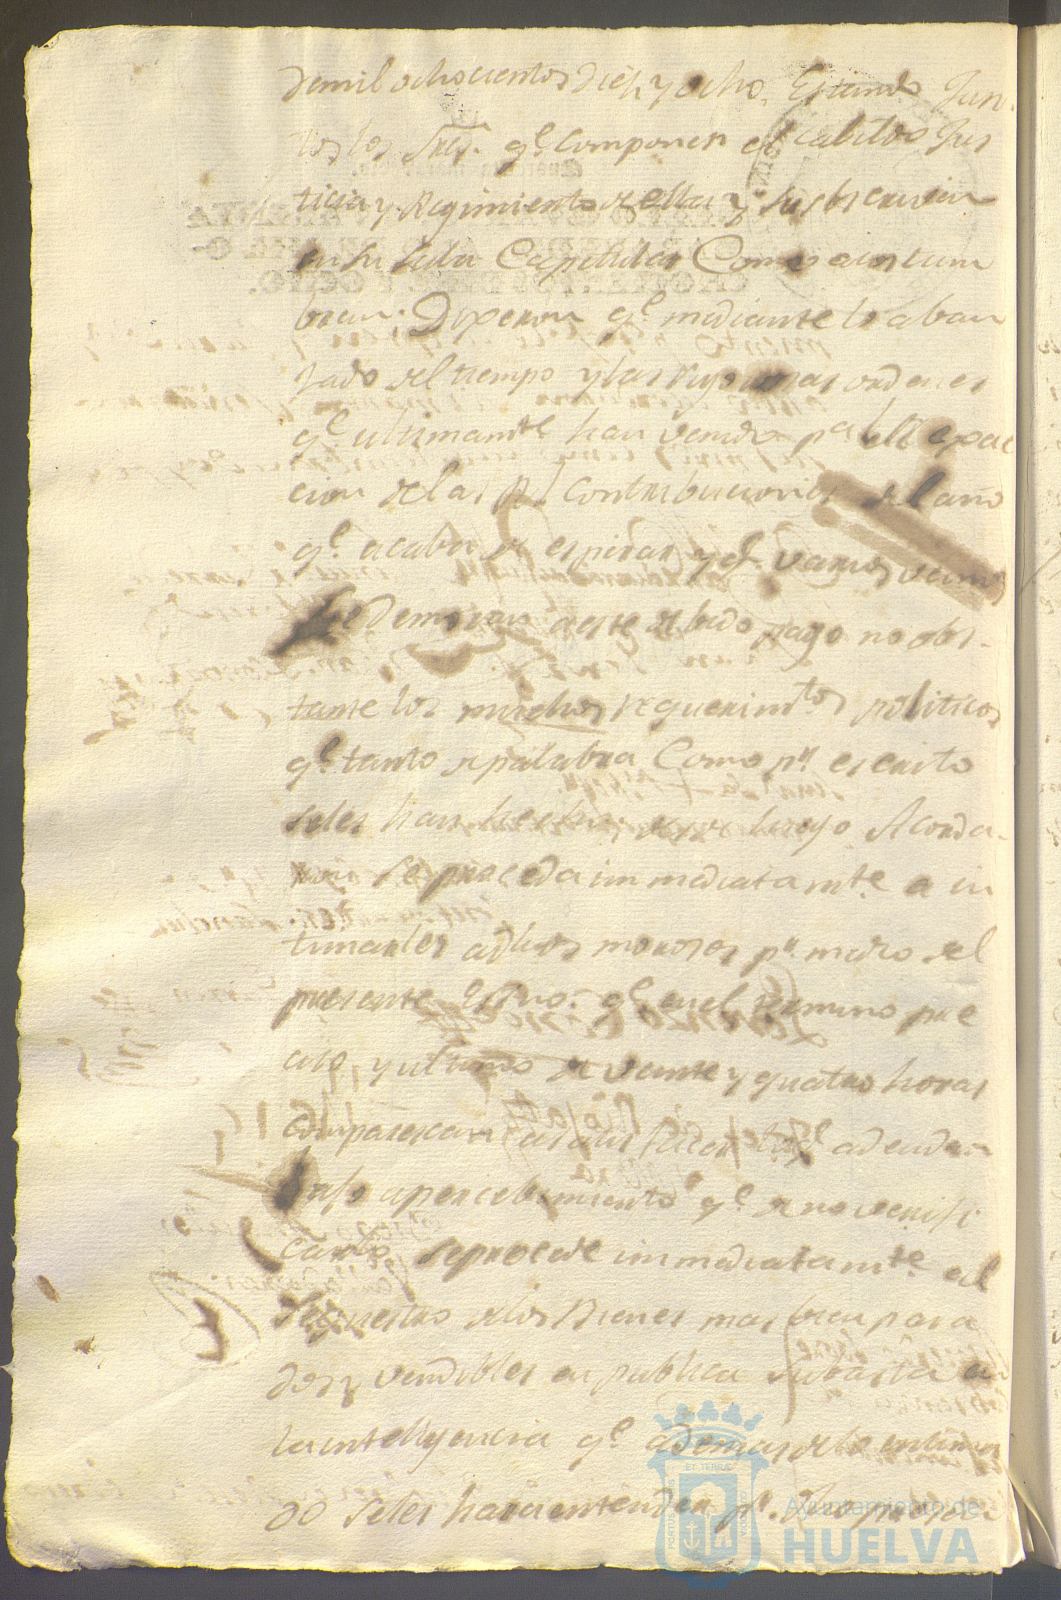 de mil ochocientos diez y ocho. Estando Jun-
tos los Sres. qe. componen el Cabildo Jus
ticia y Regimiento de ella y subscriven
en su Sala Capitular Como acostum
bran: Dixeron qe. mediante lo aban
zado del tiempo y las rigorosas ordenes
qe. ultimamte. han venido pa. la
cion de las Rs. Contribuciones del año
qe. acaba de espirar y qe. varios vecinos
demoran este debido pago no obs-
tante los muchos requerimtos. politicos
qe. tanto de palabra Como pr. escrito
seles han hecho, desde luego Acorda-
ron se proceda immediatamte. a in
timarles a dhos morosos pr. medio del
presente Essno. qe. en el termino pre
ciso, y ultimo de veinte y quatro horas
comparescan a satisfacer lo qe. adeudan
bajo apercebimiento qe. de no verifi
carlo se procede immediatamte. al
Sequestro de los Bienes mas bien para
dos y vendibles en publica subasta en
la inteligencia qe. ademas de lo
do seles hara entender pr.
Ayuntamiento de
HUELVA